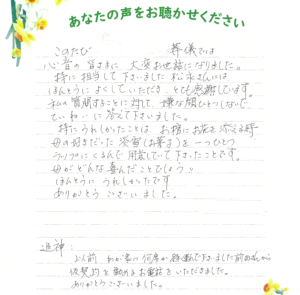 あなたの声をお聴かせください
このたび 葬儀では
心音の皆さまに 大変お世話になりました。
特に担当して下さいました 松永さんには
ほんとうに よくしていただき とても感謝しています。
私の質問することに対して 嫌な顔ひとつしないで
ていねいに 答えて下さいました。
特にうれしかったことは、お棺にお花を添える時
母の好きだった 洛雁(お菓子)を 一つひとつ
ラップにくるんで 用意していて下さったことです。
母がどんな喜んだことでしょう!!
ほんとうに うれしかったです
ありがとう ございました。
追伸:
以前 わが家に何度か 下さいました
仮契約を勧める お電話をいただきました。
ありがとうございました。